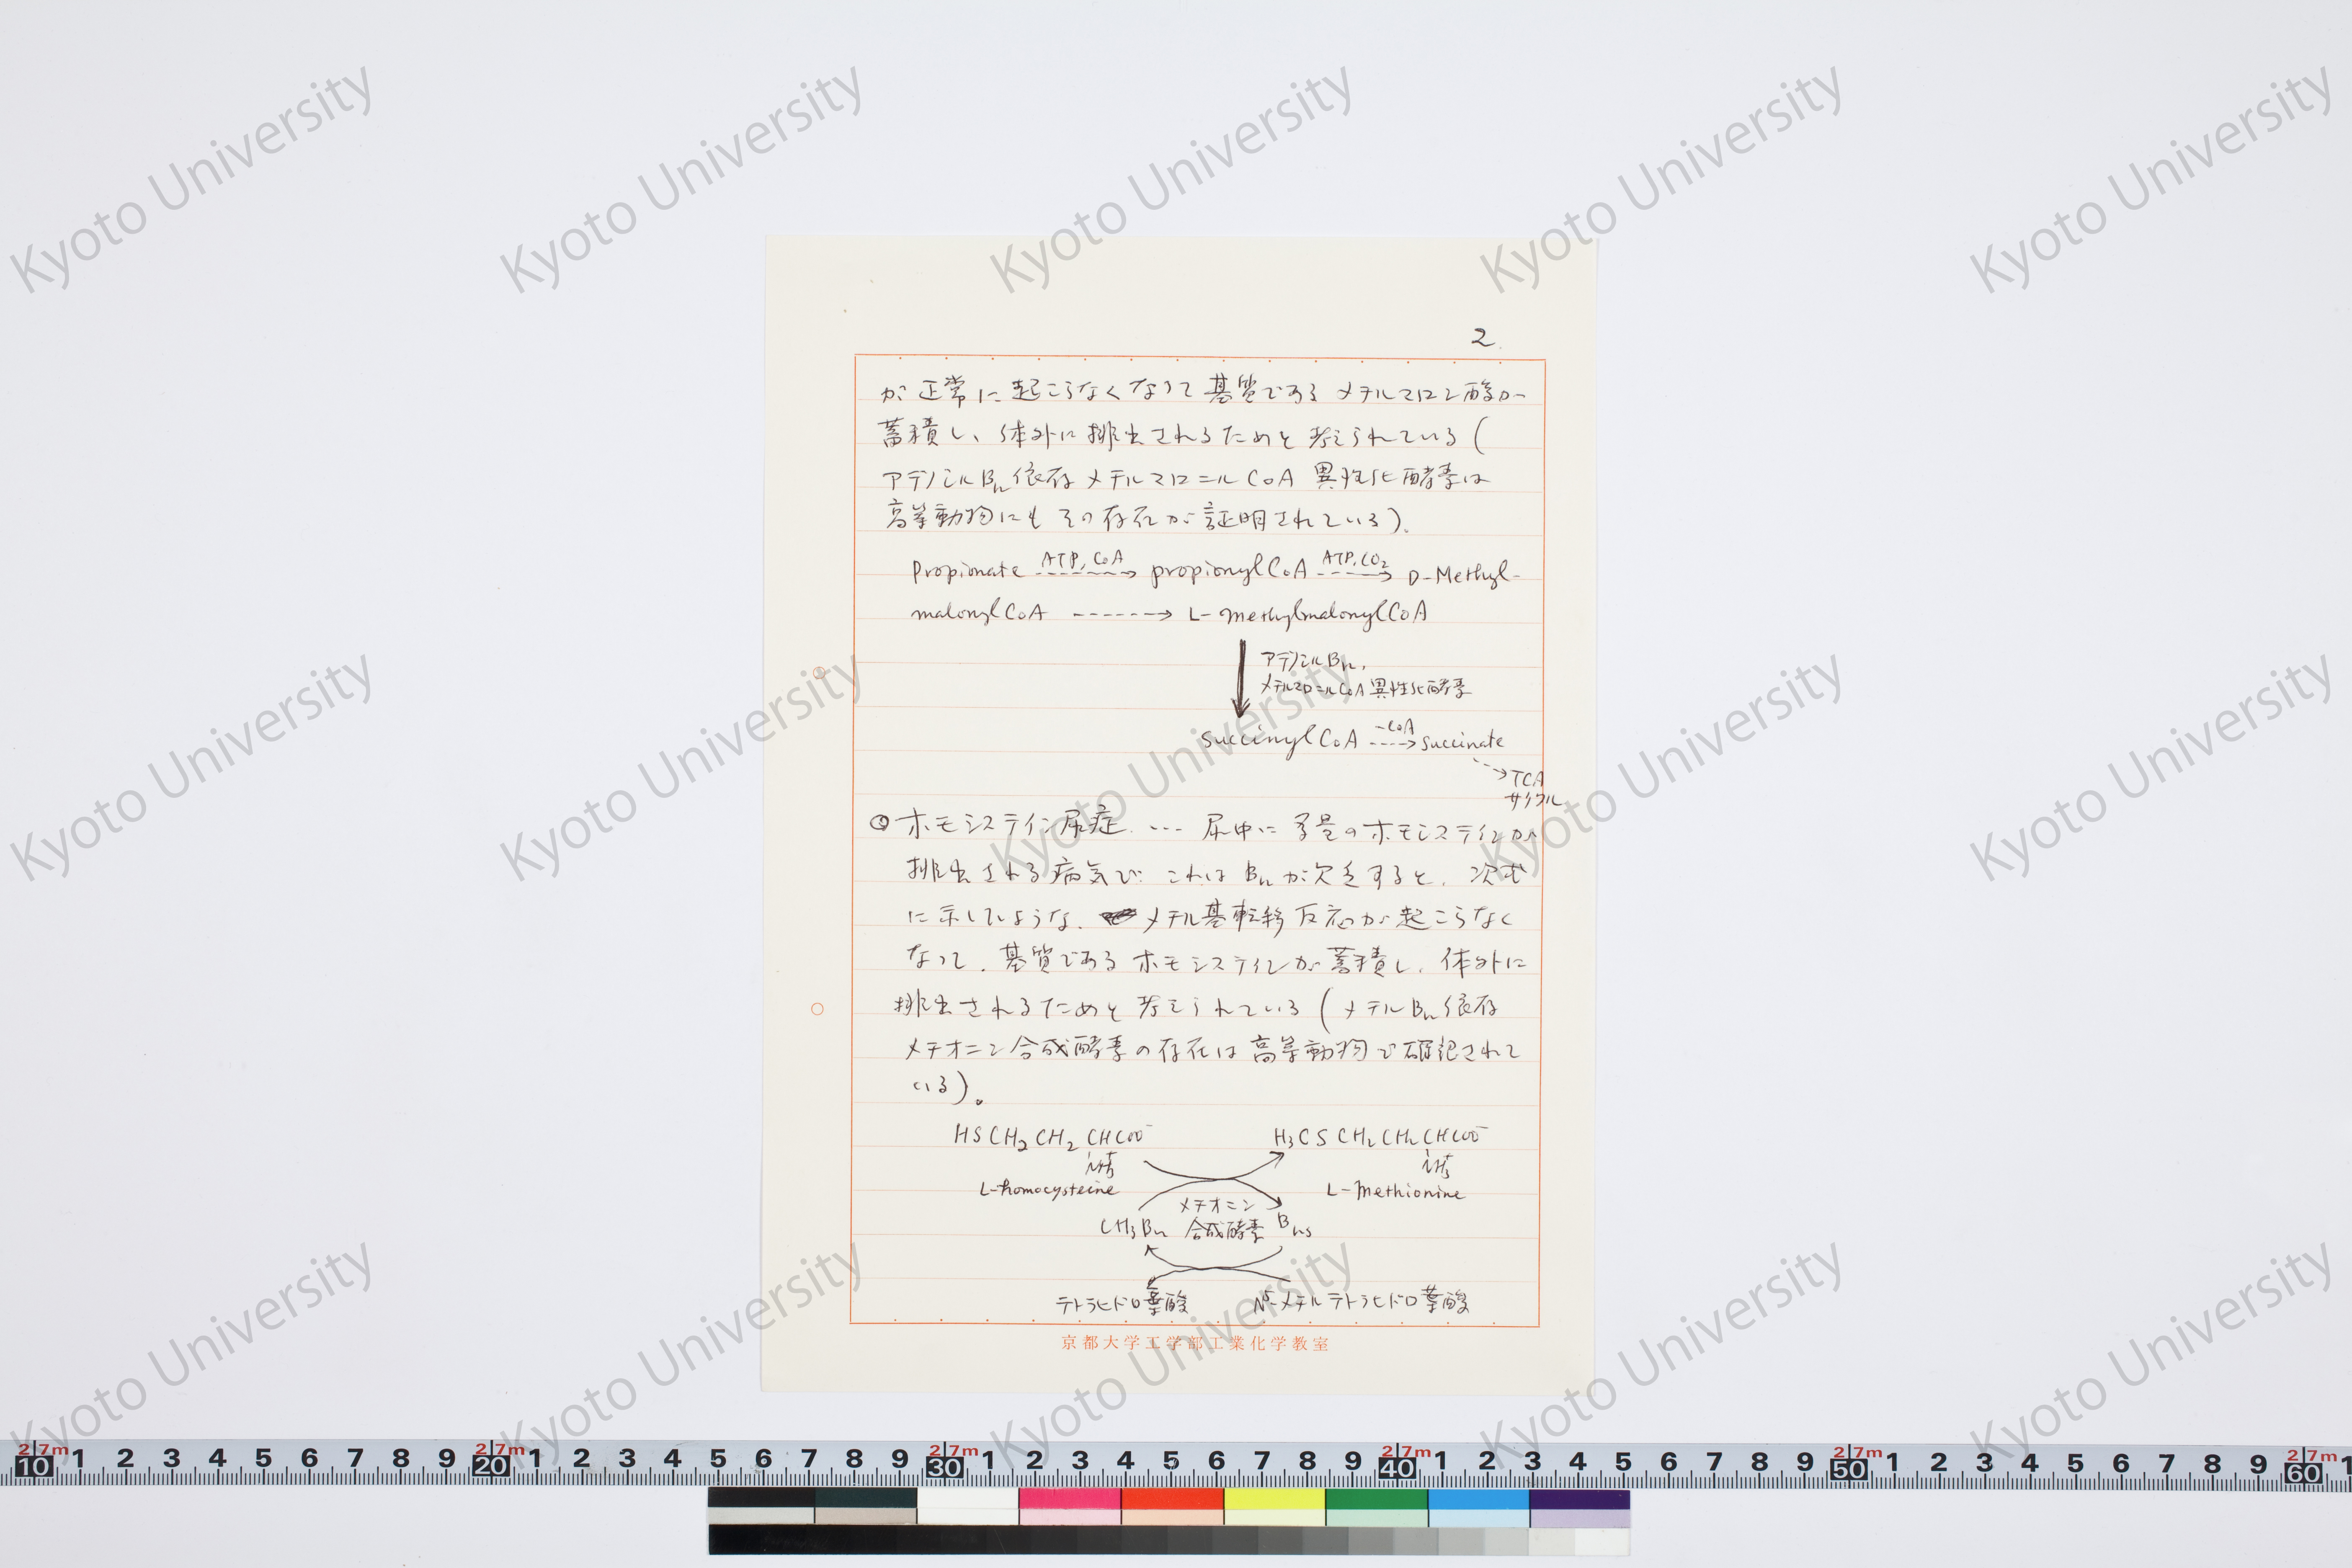 2.
が正常に起こらなくなって基質であるメチルマロン酸が
蓄積し、体外に排出されるためと考えられている(
アデノシルB12依存メチルマロニルCoA異性化酵素は
高等動物にもその存在が証明されている).
Propionate ATP, CoA ⇢ propionylCoA ATP, CO2 ⇢ D-Methyl-
malonylCoA ⇢ L-methylmalonylCoA
アデノシルB12,
メチルマロニルCoA異性化酵素
succinylCoA -CoA ⇢ succinate
TCA
サイクル
◎ホモシスティン尿症.... 尿中に多量のホモシスティンが
排出される病気で.これはB12が欠乏すると、次式
に示していような、メチル基転移反応が起こらなく
なって、基質であるホモシスティンが蓄積し、体外に
排出されるためと考えられている(メチルB12依存
メチオニン合成酵素の存在は高等動物で確認されて
いる)。
HSCH2CH2CHCOO- H3CSCH2CH2CHCOO-
NH3+ NH3+
L-homocysteine L-Methionine
メチオニン
CH3B12 合成酵素 B12s
テトラヒドロ葉酸 N5-メチルテトラヒドロ葉酸
京都大学工学部工業化学教室
Kyoto University
2 7m 10 1 2 3 4 5 6 7 8 9 2 7m 20 1 2 3 4 5 6 7 8 9 2 7m 30 1 2 3 4 5 6 7 8 9 2 7m 40 1 2 3 4 5 6 7 8 9 2 7m 50 1 2 3 4 5 6 7 8 9 2 7m 60 1